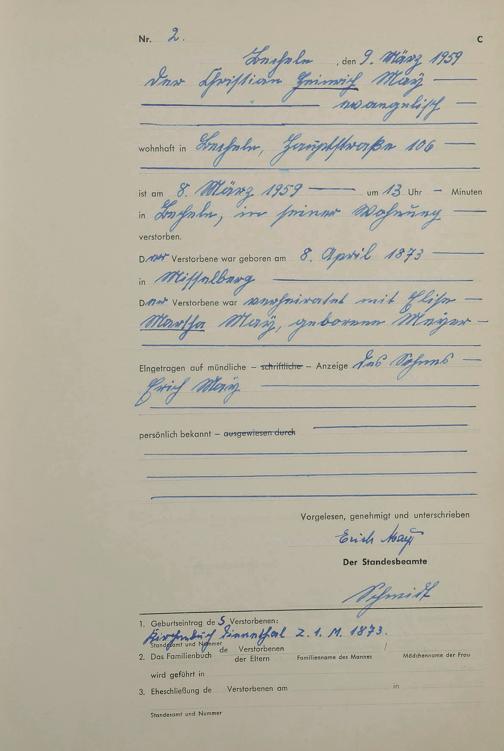 Nr. 2. C
Becheln, den 9. März 1959
Der Christian Heinrich May
evangelisch
wohnhaft in Becheln, Hauptstraße 106
ist am 8. März 1959 um 13 Uhr – Minuten
in Becheln, in seiner Wohnung
verstorben.
Der Verstorbene war geboren am 8. April 1873
in Misselberg
Der Verstorbene war verheiratet mit Elise
Martha May, geborene Meyer
Eingetragen auf mündliche – schriftliche – Anzeige des Sohnes
Erich May
persönlich bekannt – ausgewiesen durch
Vorgelesen, genehmigt und unterschrieben
Erich May
Der Standesbeamte
Schmidt
1. Geburtseintrag des Verstorbenen:
Kirchenbuch Dienethal Z. 1. M. 1873.
Standesamt und Nummer
2. Das Familienbuch de Verstorbenen / der Eltern Familienname des Mannes Mädchenname der Frau
wird geführt in
3. Eheschließung de Verstorbenen am in
Standesamt und Nummer